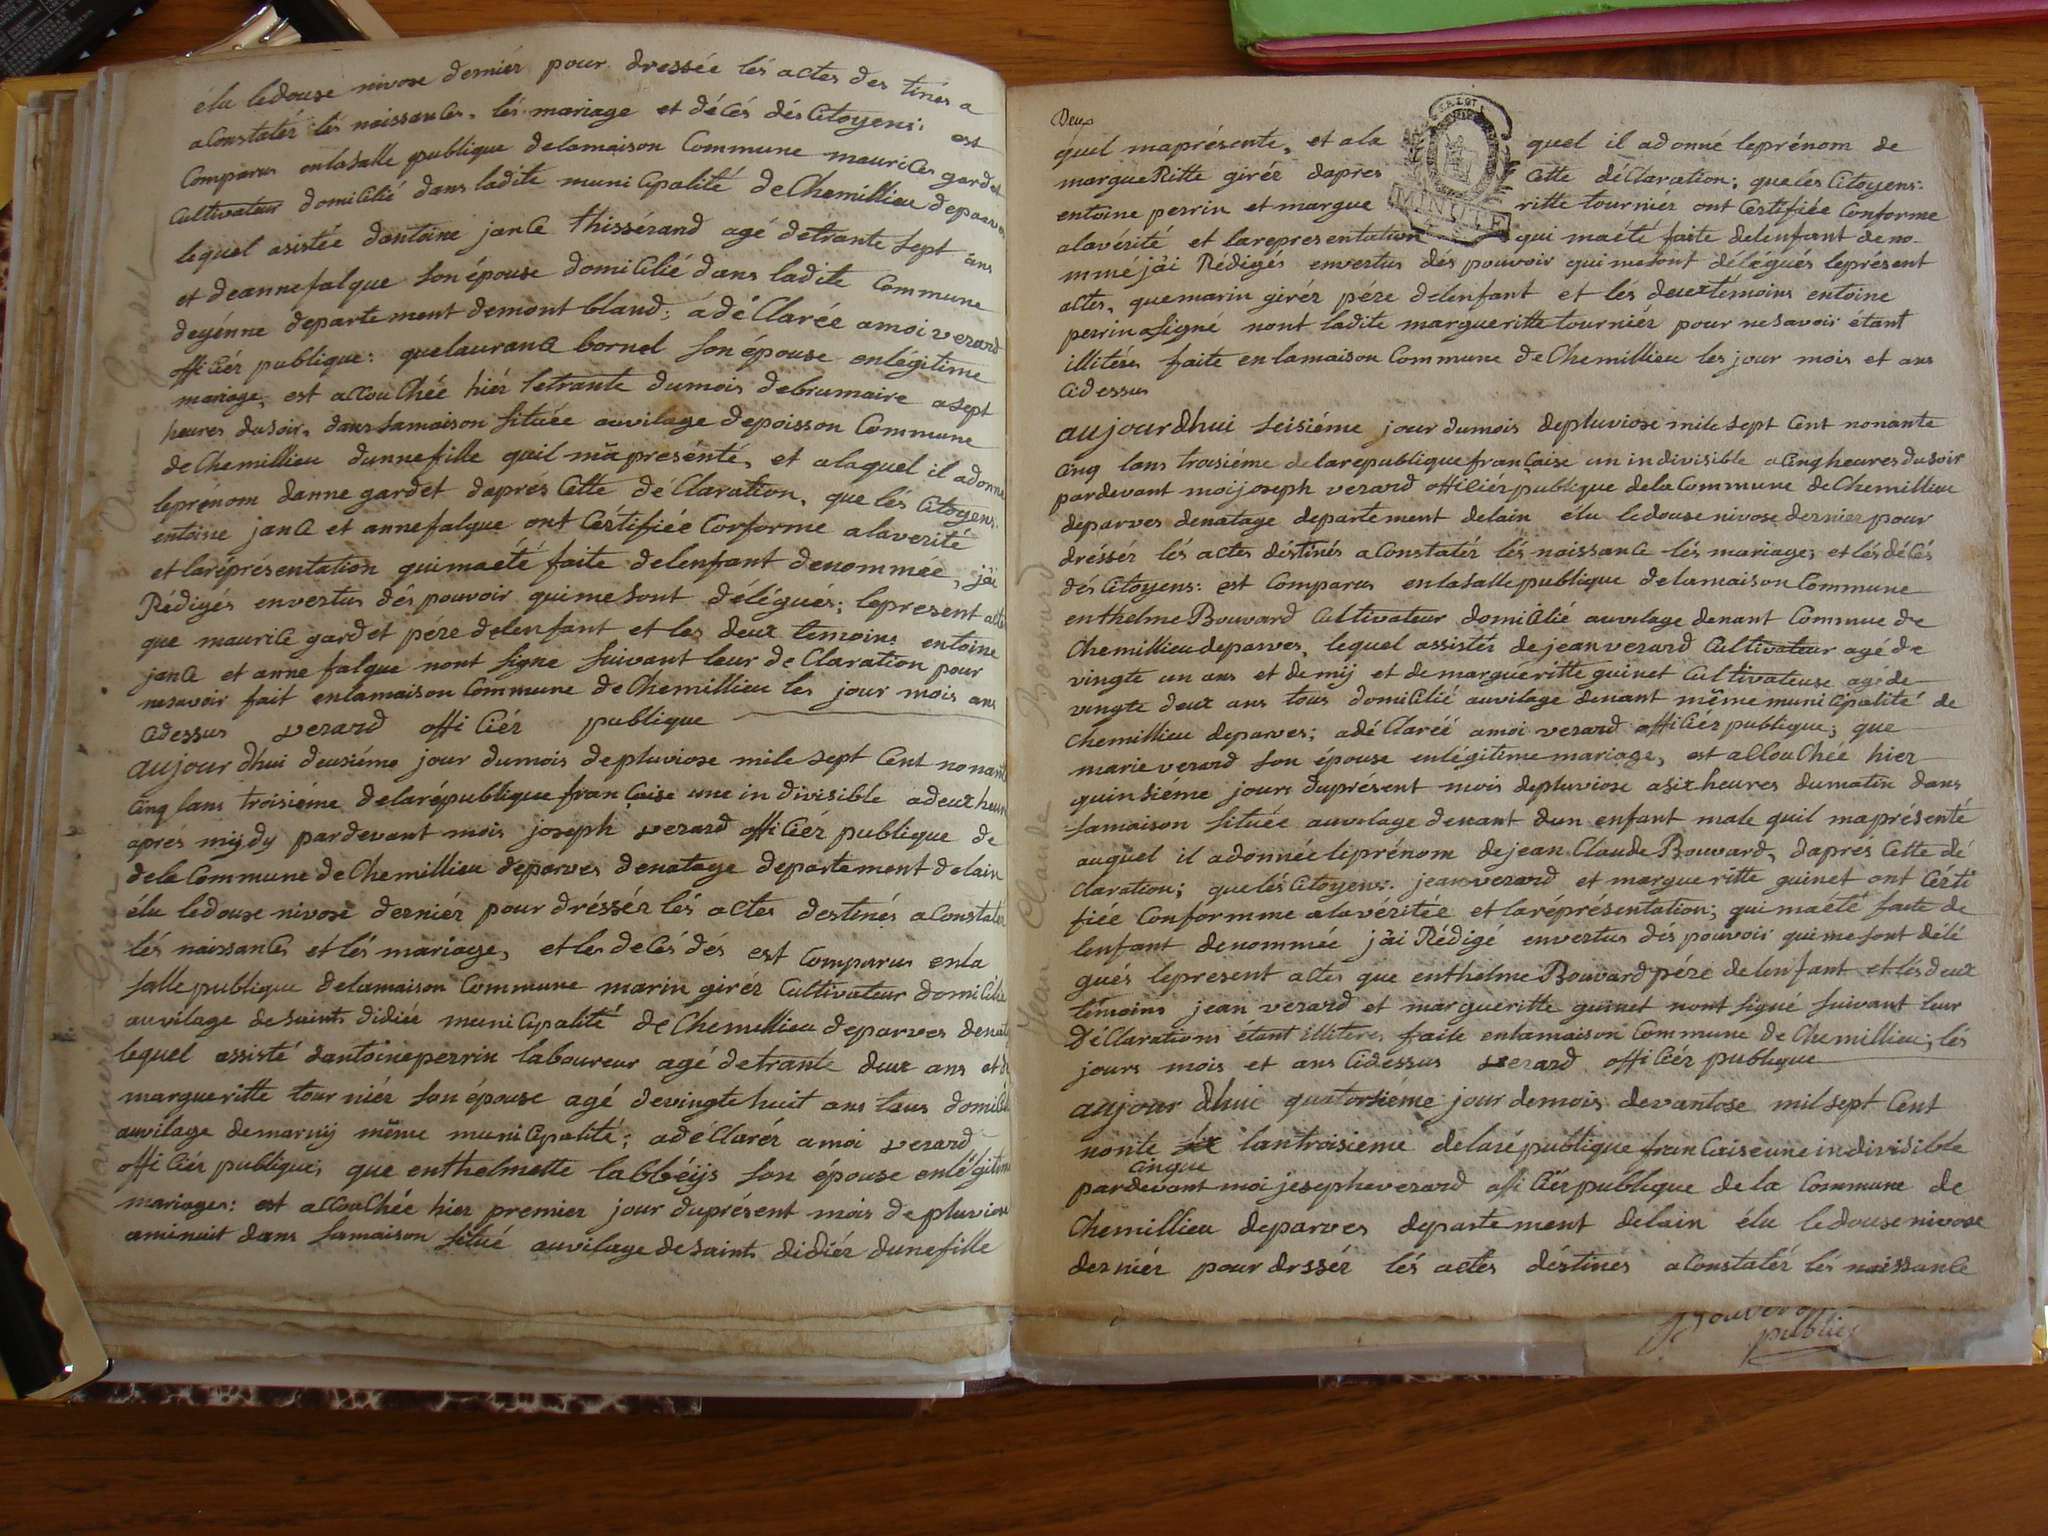 élu ledouse nivose derniér pour dressée lés actes des tinés a
aConstatér lés naissances, lés mariage et décés dés Citoyens: est
Comparus enlasalle publique delamaison Commune maurices gardet
Cultivateur domicilié dans ladite municipalité deChemillieu deparves
lequel asistée dantoine janCe thissérand agé detrante sept ans
et deannefalque son épouse domicilié dans ladite Commune
deyénne département demont bland; a déClarée amoi verard
officiér publique: quelauranCe bornel son épouse enlégitime
mariage, est accouChée hiér letrante dumois debrumaire asept
heures dusoir, dans samaison située auvilage depoisson Commune
deChemillieu dunnefille quil mä présénté, et alaquel il adonne
leprénom danne gardet daprés Cette déClaration, que lés Citoyens:
entoine janCe et annefalque ont Cértifiée Corforme alaverité
et laréprésentation quimaété faite delenfant denommee, jäi
Rédigés envertus dés pouvoir quimesont délégués; lepresent actes
que maurice gardet pére delenfant et les deux temoins entoine
janCe et anne falque nont signe suivant leur déClaration pour
nesavoir fait enlamaison Commune deChemillieu les jour mois ans
Cidessus verard officiér publique
aujourdhui deusiéme jour dumois depluviose mile sept Cent nonante
Cinq lans troisiéme delarépublique franCaise une indivisible adeux heures
aprés mijdy pardevant mois joseph verard officiér publique de
dela Commune deChemillieu deparves denatage département delain
élu ledouse nivose derniér pour dréssér lés actes destinés aConstater
lés naissanCes et lés mariage, et les decés dés est Comparus enla
salle publique delamaison Commune marin giréz Cultivateur domicilié
auvilage desaints didiée municipalité deChemillieu deparves denat
lequel assisté dantoineperrin laboureur agé detrante deux ans et de
margueritte tourniér son épouse agé devingte huit ans tous domicilié
auvilage demarnij même municipalité; adéClarér amoi verard
officiér publique; que enthelmette labbéijs son épouse enlégitime
mariages: est accouChée hiér premier jour duprésent mois depluviose
aminuit dans samaison situé auvilage desaints didiér dunefille
Anne Gardet
Marguerite Girez
Deux
quel maprésente, et ala quel il adonné leprénom de
margueRitte giréz dapres Cette déClaration; quelés Citoyens:
entoine perrin et margue ritte tournier ont Certifiée Conforme
alavérité et larepresentation qui maété faite delenfant deno-
mmé jäi Rédigés envertus dés pouvoir quimesont délégués leprésent
actes, quemarin giréz pére delenfant et lés deuxtemoins entoine
perrin asigné nont ladite margueritte tourniér pour nesavoir étant
illitéres faite enlamaison Commune deChemillieu les jour mois et ans
Cidessus
MINUTE
aujourdhui seisiéme jour dumois depluviose mile sept Cent nonante
Cinq lans troisiéme delarepublique franCaise un indivisible aCinqheures dusoir
pardevant moi joseph verard officiér publique delaCommune deChemillieu
deparves denatage departement delain élu ledouse nivose dernier pour
dréssér lés actes déstinés aConstatér lés naissanCe lés mariage, et lés décés
dés Citoyens: est Comparus enlasalle publique delamaison Commune
enthelme Bouvard Cultivateur domicilié auvilage denant Commue de
Chemillieu deparves, lequel assistés dejean verard Cultivateur agé de
vingte un ans et demij et demarguéritte guinet Cultivateuse agé de
vingte deux ans tous domicilié auvilage denant mëme municipalité de
Chemillieu deparves; adéClaréé amoi verard officiér publique; que
marie verard son épouse enlégitime mariage, est accouChée hier
quinsiéme jours duprésent mois depluviose asix heures dumatin dans
samaison située auvilage denant dun enfant male quil maprésénté
auquel il adonnée leprénom dejean Claude Bouvard, daprés Cette dé
Claration; que lés Citoyens: jean verard et margueritte guinet ont Cérti
fiée Conformme alavéritée et laréprésentation; qui maété faite de
lenfant denommée jäi Rédigé envertus dés pouvois quimesont délé
gués lepresent actes que enthelme Bouvard pére delenfant et lés deux
témoins jean verard et margueritte guinet nont signé suivant leur
déClarations étant illitéres faite enlamaison Commune deChemillieu; lés
jours mois et ans Cidessus verard officiér publique
aujourdhui quatorsiéme jour demois devantose mil sept Cent
nonte six lantroisieme delarépublique franCaise une indivisible
Cinque
pardevant moi jesephe verard officiér publique dela Commune de
Chemillieu deparves departement delain élu ledouse nivose
derniér pour drssér lés actés déstinés aConstatér lés naissanCe
Jean Claude Bouvard
public